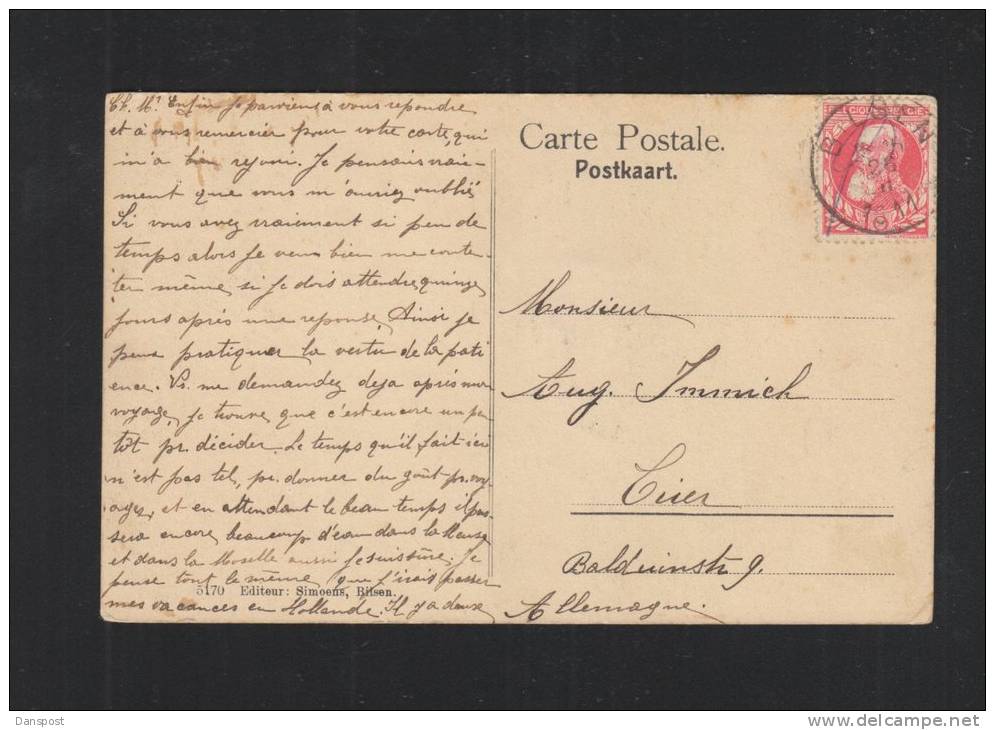 Ch. Mr. Enfin je parviens à vous repondre
et à vous remercier pour votre carte, qui
m'a bien rejoui. Je pensais vrai-
ment que vous m'auriez oublié.
Si vous avez vraiement si peu de
temps alors je veux bien me conten-
ter même, si je dois attendre quinze
jours après une reponse, Ainsi je
peux pratiquer la vertu de la pati
ence. Vs. me demandez deja après mon
voyage, je trouve que c'est encore un peu
tôt pr. décider. Le temps qu'il fait ici
n'est pas tel, pr. donner du goût pr. voy
ages, et en attendant le beau temps il pas-
sera encore beaucoup d'eau dans la Meuse
et dans la Moselle aussi je suis sûre. Je
pense tout le même que j'irais passer
mes vacances en Hollande. Il y a deux
5170 Editeur: Simoens, Bilsen.
Carte Postale.
Postkaart.
BELGIQUE
BILSEN
26
1911
Monsieur
Aug. Immich
Trier
Balduinstr 9.
Allemagne.
Danspost
delcampe.net